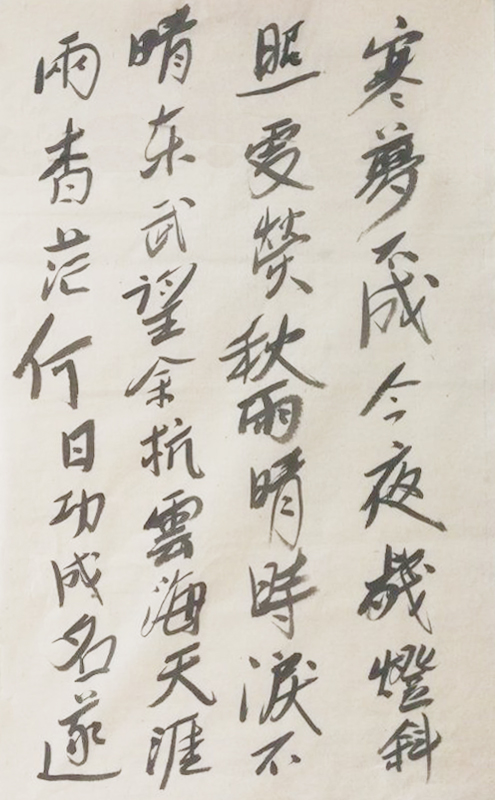 寒夢不成今夜殘燈斜
照處熒秋雨晴時淚不
晴东武望余杭雲海天涯
兩杳茫何日功成名遂